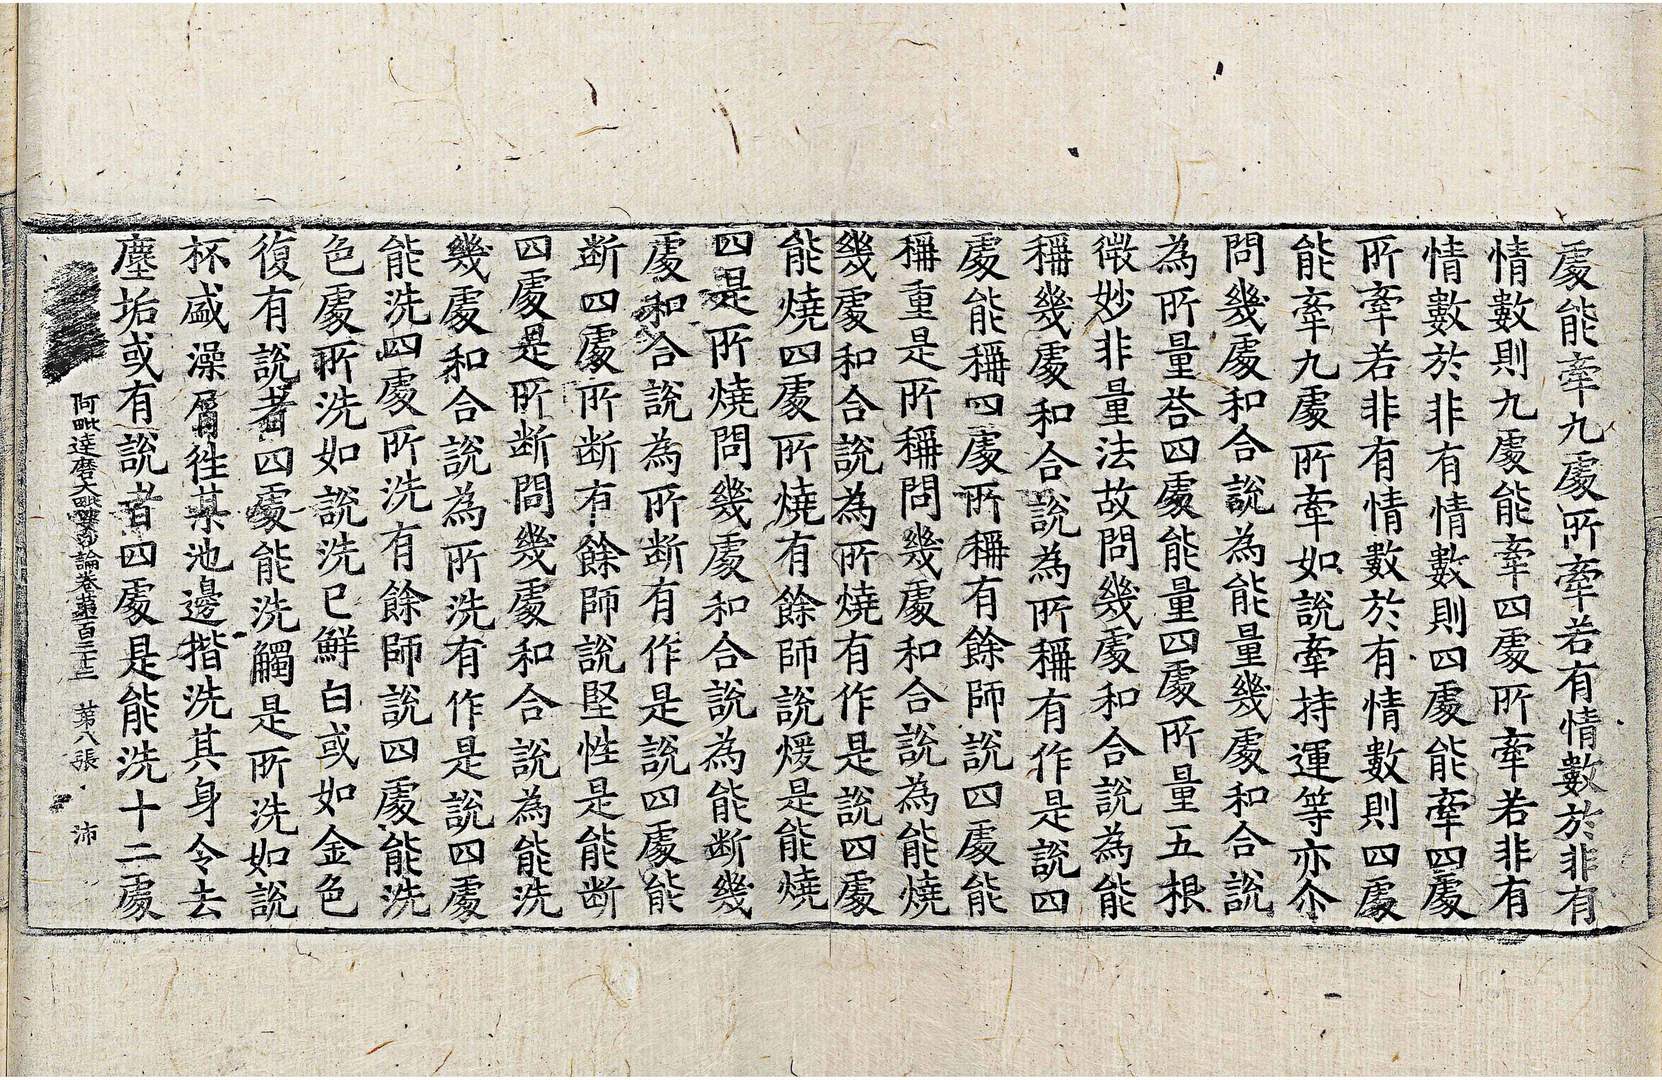 處能牽九處所牽若有情數於非有
情數則九處能牽四處所牽若非有
情數於非有情數則四處能牽四處
所牽若非有情數於有情數則四處
能牽九處所牽如說牽持運等亦尒
問幾處和合說為能量幾處和合說
為所量荅四處能量四處所量五根
微妙非量法故問幾處和合說為能
稱幾處和合說為所稱有作是說四
處能稱四處所稱有餘師說四處能
稱重是所稱問幾處和合說為能燒
幾處和合說為所燒有作是說四處
能燒四處所燒有餘師說煖是能燒
四是所燒問幾處和合說為能斷幾
處和合說為所斷有作是說四處能
断四處所断有餘師說堅性是能断
四處是所断問幾處和合說為能洗
幾處和合說為所洗有作是說四處
能洗四處所洗有餘師說四處能洗
色處所洗如說洗已鮮白或如金色
復有說者四處能洗觸是所洗如說
杯盛澡屑徃某池邊揩洗其身令去
塵垢或有說者四處是能洗十二處
阿毗達磨大毗婆沙論卷第一百三十三 第八張 沛